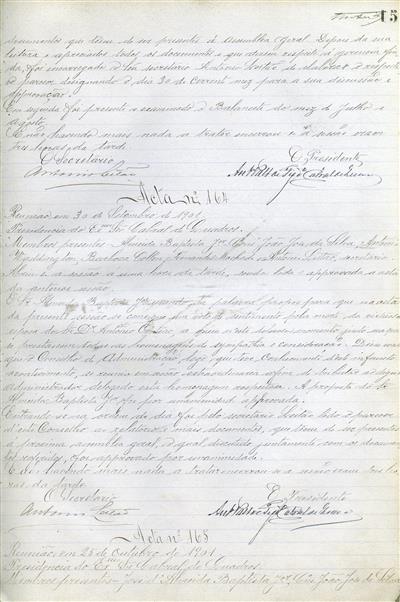 15
documentos que têem de ser presentes á Assembléa Geral. Depois da sua
leitura e apreciados todos os documentos que dizem respeito á gerencia
da, foi encarregado o Snr secretario Antonio de elaborar o respecti
vo parecer, designando o dia 30 do corrente mez para a sua discussão e
approvação.
Em seguida foi presente e examinado o Balancete do mez de Julho e
Agosto.
E não havendo mais nada a tratar encerrou-se a sessão eram
tres horas da tarde.
O Secretario O Presidente
Antonio
Acta nº 164
Reunião em 30 de Setembro de 1901
Presidencia do Exmo Sr Cabral de Quadros.
Membros presentes - Almeida Baptista Jor João José da Silva, Antonio
Barboza Collen, Fernandes e Antonio secretario
Abriu-se a sessão a uma hora da tarde, sendo lida e approvada a acta
da anterior sessão.
O Sr Almeida Baptista Jor pede a palavra propoz para que na acta
da presente sessão se consigne um voto de sentimento pela morte da
esposa do Sr Dr Antonio a quem
prestar as homenagens de sympathia e consideração. Disse mais
que o Conselho de Administração, logo que teve conhecimento d'este infausto
acontecimento, se reuniu em sessão extraordinaria afim de
administrador delegado esta homenagem respeitosa. A proposta do Sr
Almeida Baptista Jor foi por unanimidade approvada.
Entrando-se na ordem do dia foi lido pelo secretario o parecer
d'este Conselho ao relatorio e mais documentos, que teem de ser presentes
á proxima assembléa geral, o qual discutido juntamente com os documen
tos referidos, foi approvado por unanimidade.
E não havendo mais nada a tratar encerrou-se a sessão eram tres ho
ras da tarde.
O Secretario O Presidente
Antonio
Acta nº 165
Reunião em 25 de Outubro de 1901
Presidencia do Exmo Sr Cabral de Quadros
Membros presentes - José d'Almeida Baptista Jor, João José da Silva